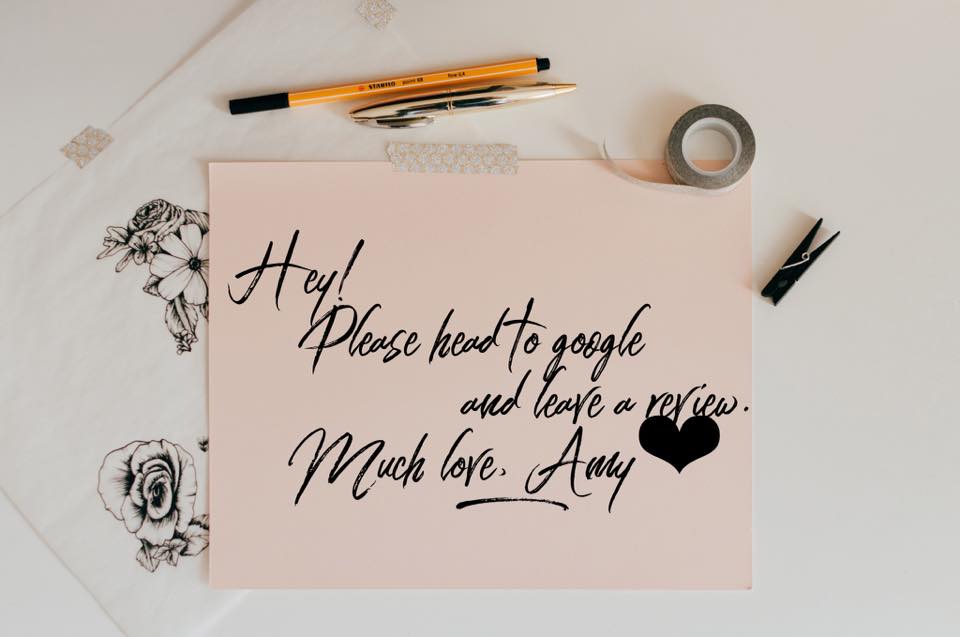 STABILO point 88 fine 0.4
Hey!
Please head to google
and leave a review.
Much love, Amy